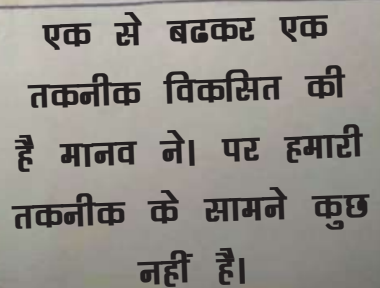 एक से बढकर एक
तकनीक विकसित की
है मानव ने। पर हमारी
तकनीक के सामने कुछ
नहीं है।